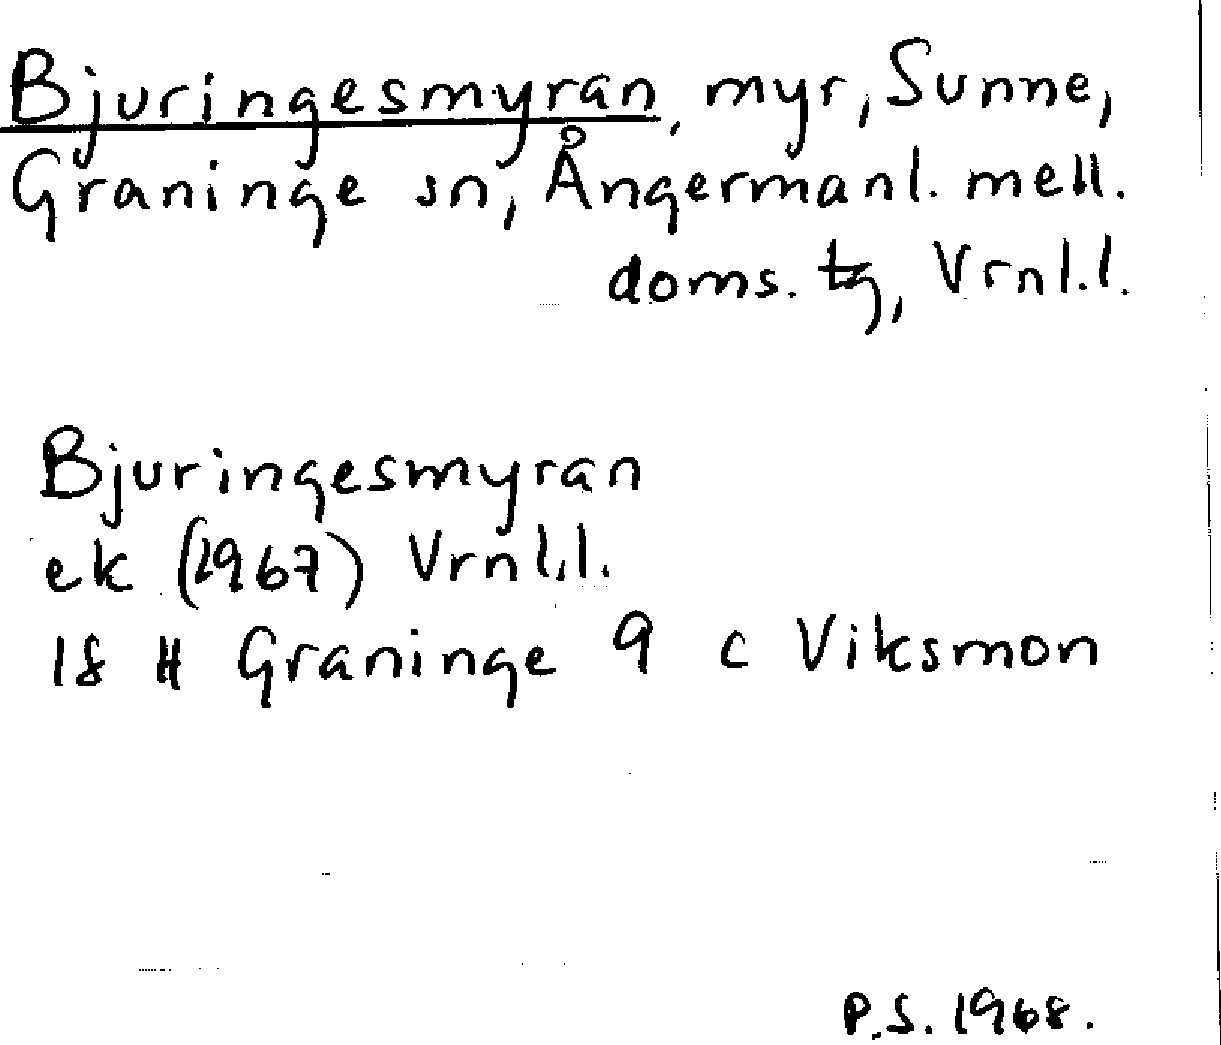 Bjuringesmyran, myr, Sunne,
Graninge sn, Ångermanl. mell.
doms. tg, Vrnl.l.
Bjuringesmyran
ek (1967) Vrnl.l.
18 H Graninge 9 c Viksmon
P.S. 1968.